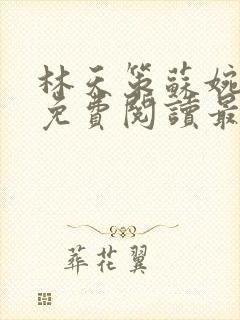 林天策蘇婉
免費閱讀最
葬花翼